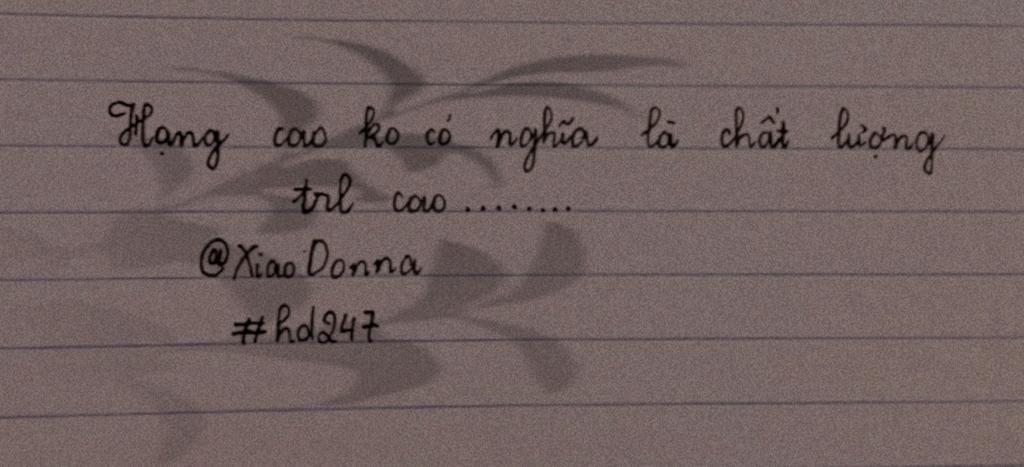 Hạng cao ko có nghĩa là chất lượng
trl cao........
@XiaoDonna
#hd247